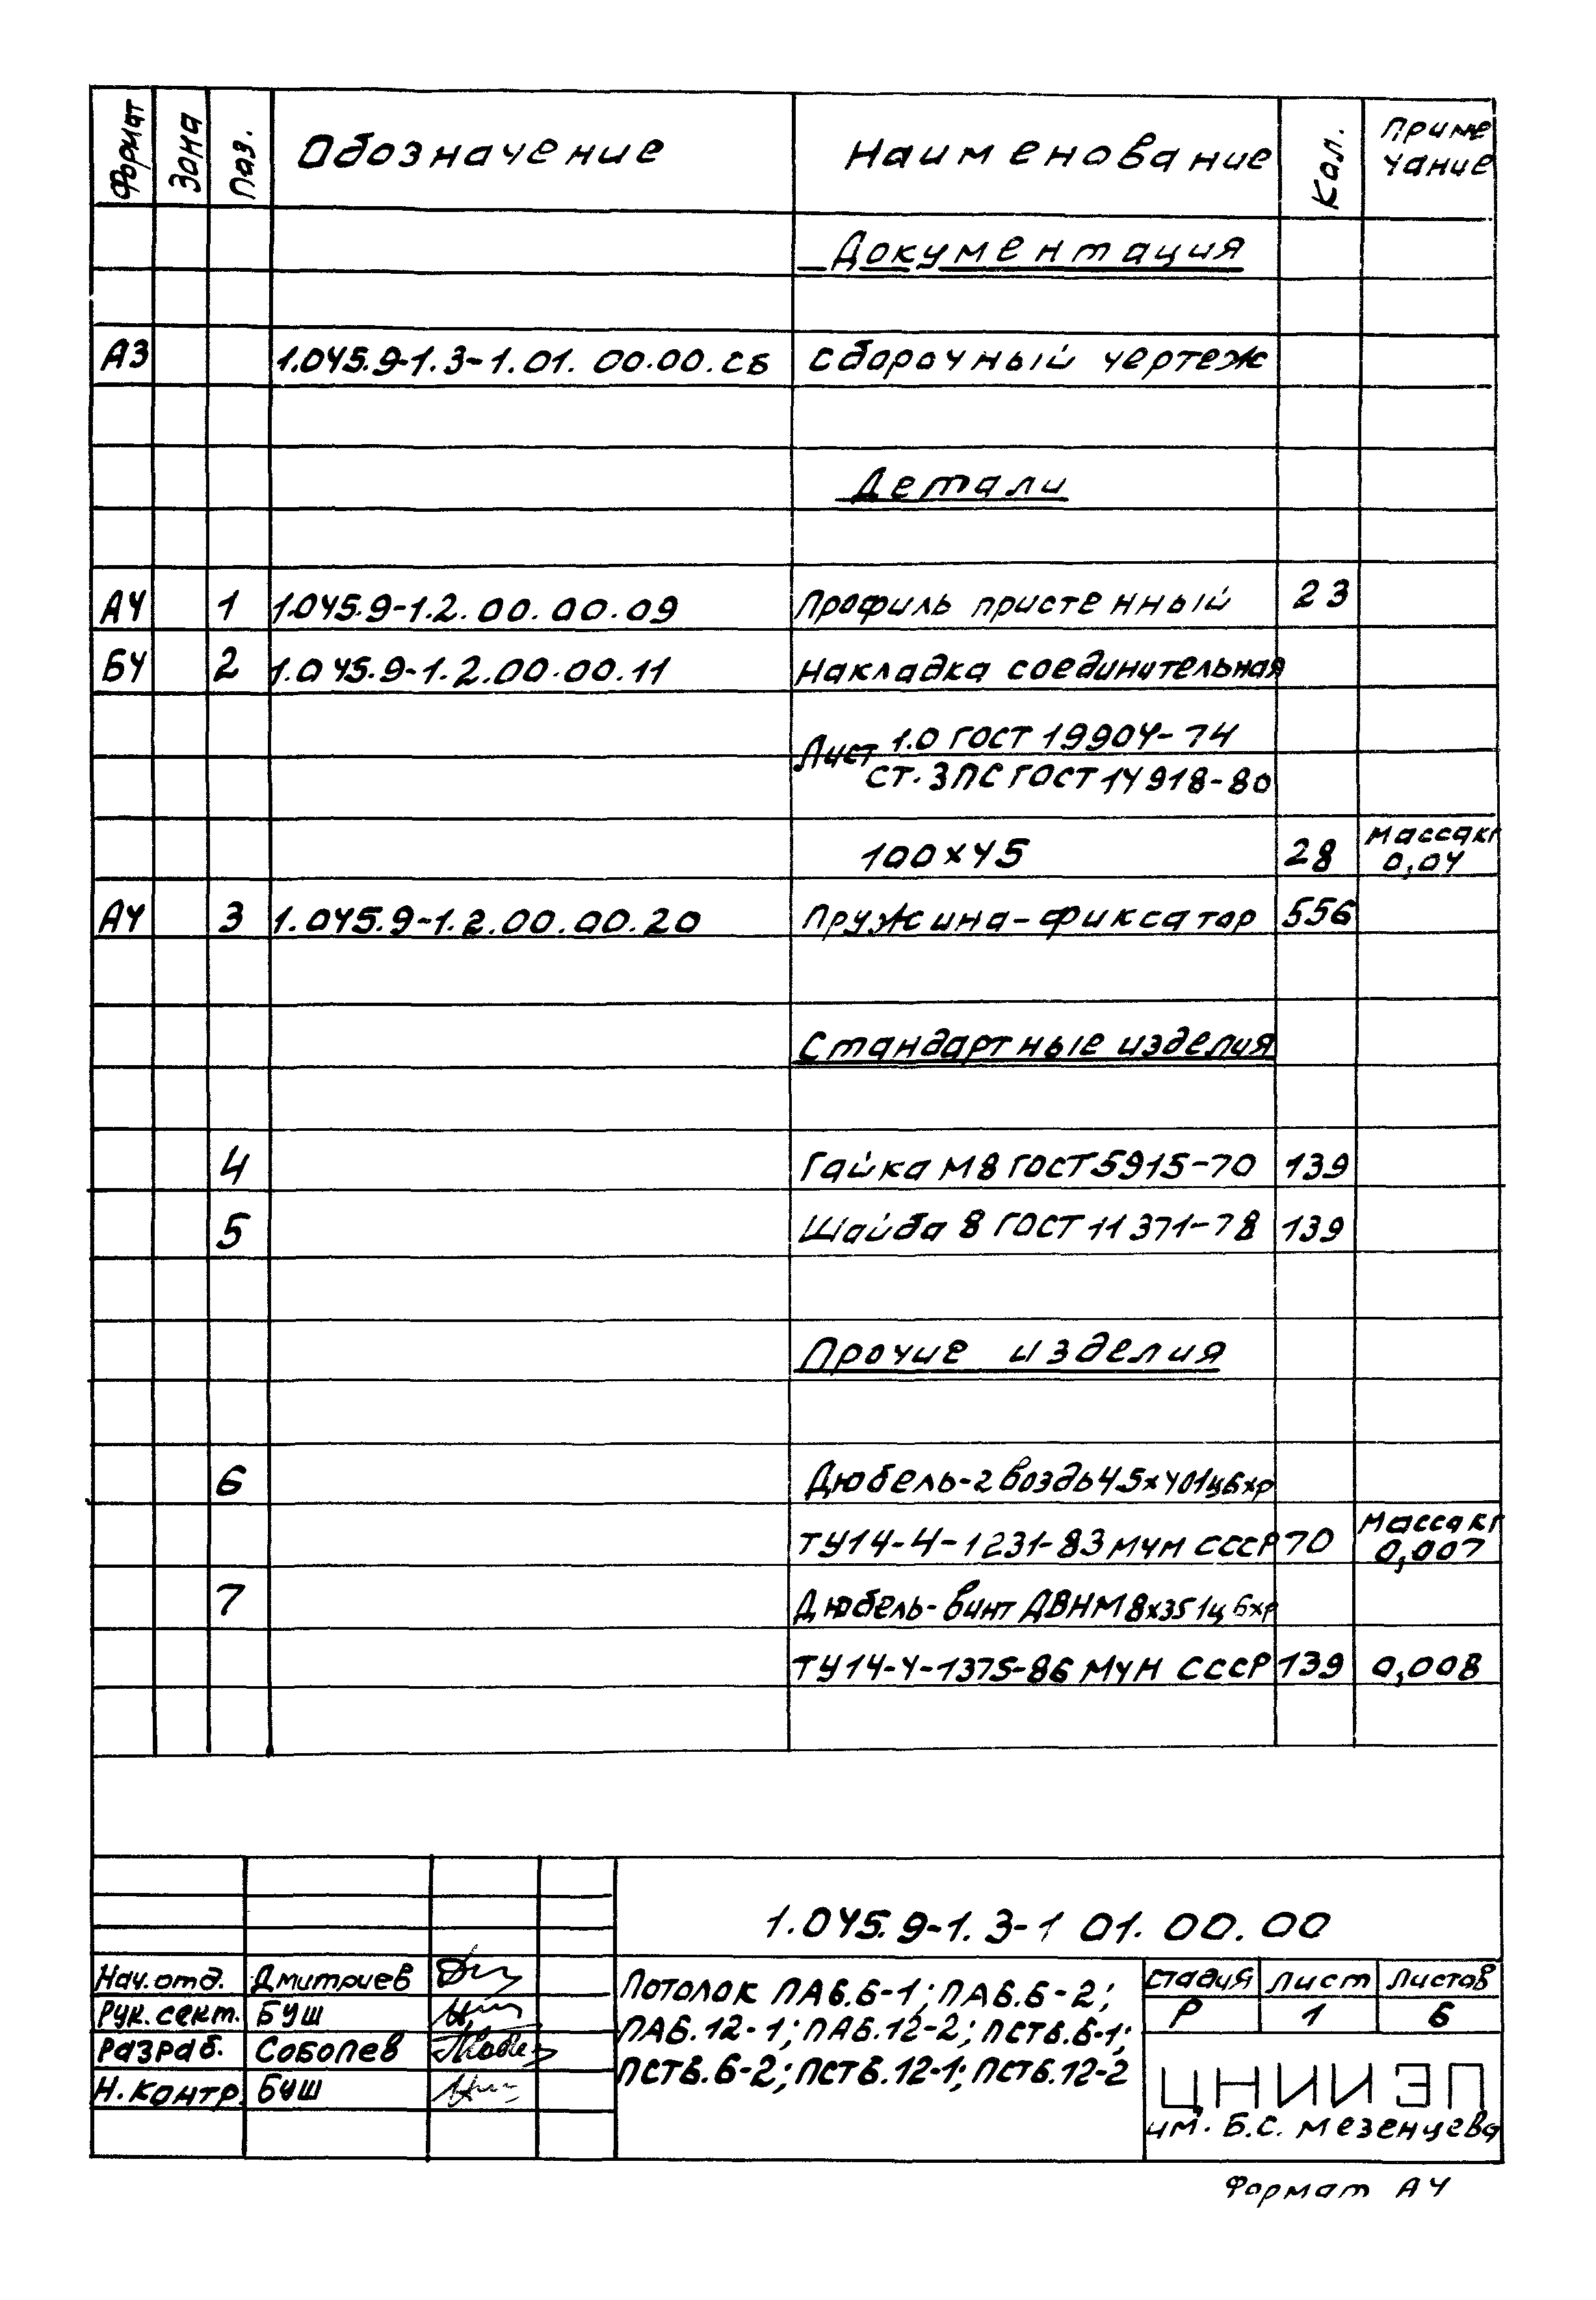 Формат Зона Поз. Обозначение Наименование Кол. Приме
чание
Документация
А3 1.045.9-1.3-1.01.00.00.СБ Сборочный чертеж
Детали
А4 1 1.045.9-1.2.00.00.09 Профиль пристенный 23
БЧ 2 1.045.9-1.2.00.00.11 Накладка соединительная
Лист 1.0 ГОСТ 19904-74
ст.3ПС ГОСТ 14918-80
100х45 28 Масса кг
0,04
А4 3 1.045.9-1.2.00.00.20 Пружина-фиксатор 556
Стандартные изделия
4 Гайка М8 ГОСТ 5915-70 139
5 Шайба 8 ГОСТ 11371-78 139
Прочие изделия
6 Дюбель-гвоздь 4,5х40 1ц6хр
ТУ14-4-1231-83 МЧМ СССР 70 Масса кг
0,007
7 Дюбель-винт ДВНМ8х35 1ц6хр
ТУ14-4-1375-86 МЧМ СССР 139 0,008
1.045.9-1.3-1 01.00.00
Нач.отд. Дмитриев
Рук.сект. Буш
Разраб. Соболев
Н.контр. Буш
Потолок ПА6.6-1; ПА6.6-2;
ПА6.12-1; ПА6.12-2; ПСТ6.6-1;
ПСТ6.6-2; ПСТ6.12-1; ПСТ6.12-2
Стадия Лист Листов
Р 1 6
ЦНИИЭП
им. Б.С. Мезенцева
Формат А4